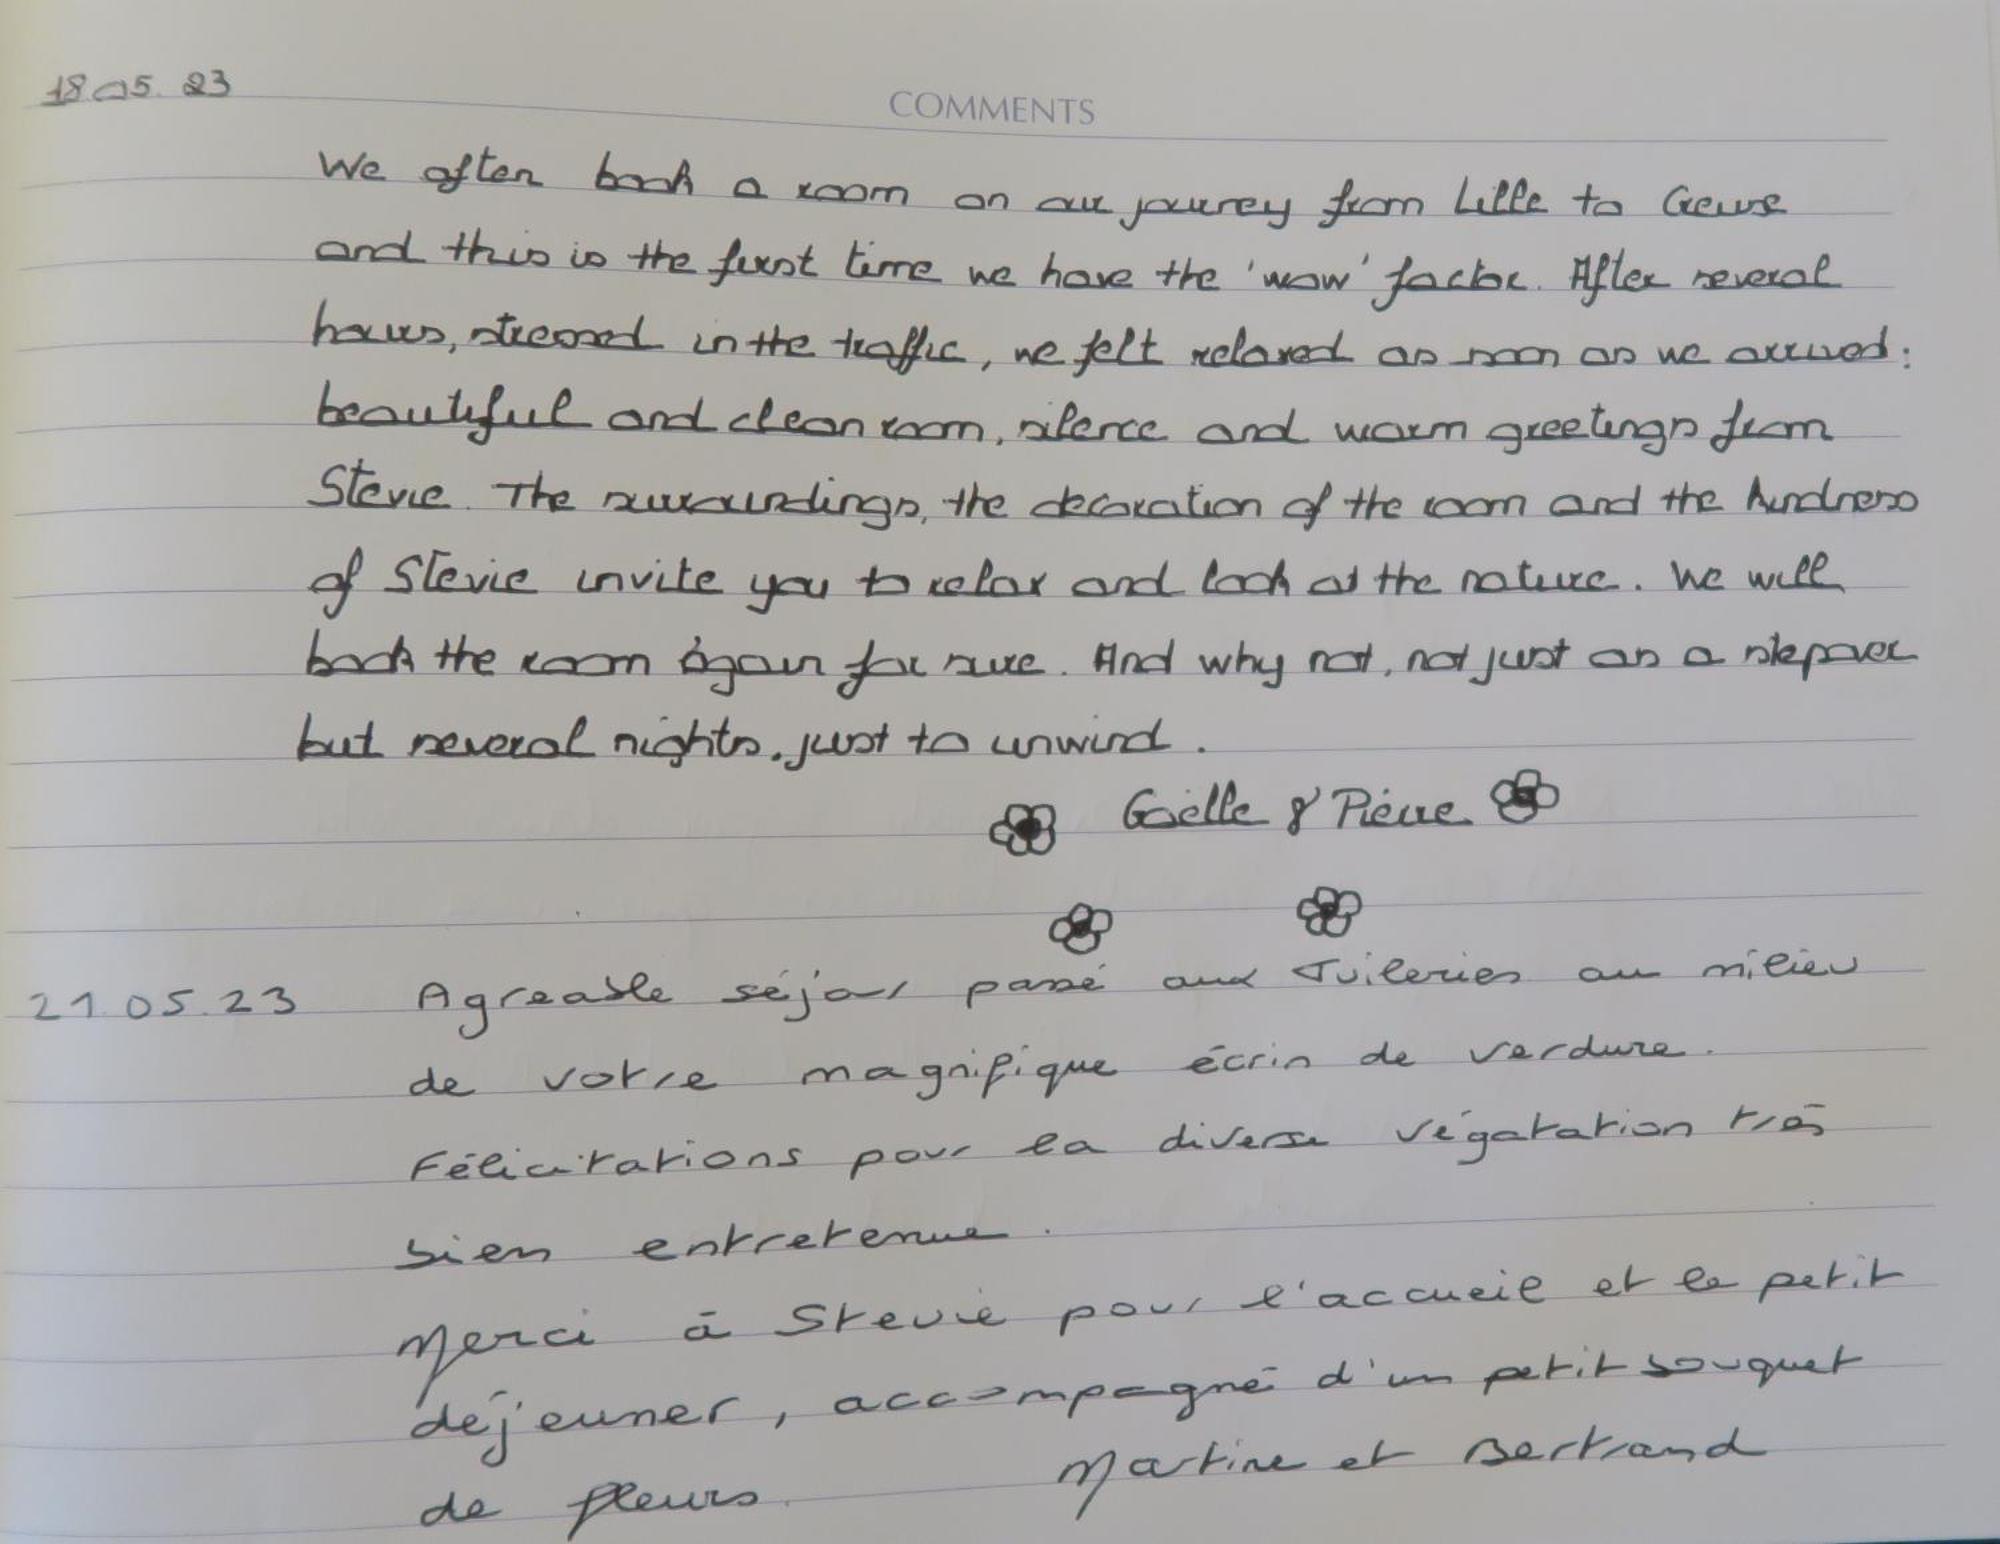 18.05.23
COMMENTS
We often book a room on our journey from Lille to Creuse
and this is the first time we have the 'wow' factor. After several
hours, stressed in the traffic, we felt relaxed as soon as we arrived:
beautiful and clean room, silence and warm greetings from
Stevie. The surroundings, the decoration of the room and the kindness
of Stevie invite you to relax and look at the nature. We will
book the room again for sure. And why not, not just as a stepover
but several nights, just to unwind.
Gaëlle & Pierre
21.05.23 Agreable séjour passé aux Tuileries au milieu
de votre magnifique écrin de verdure.
Félicitations pour la diverse végatation très
bien entretenue.
Merci à Stevie pour l'accueil et le petit
déjeuner, accompagné d'un petit bouquet
de fleurs. Martine et Bertrand